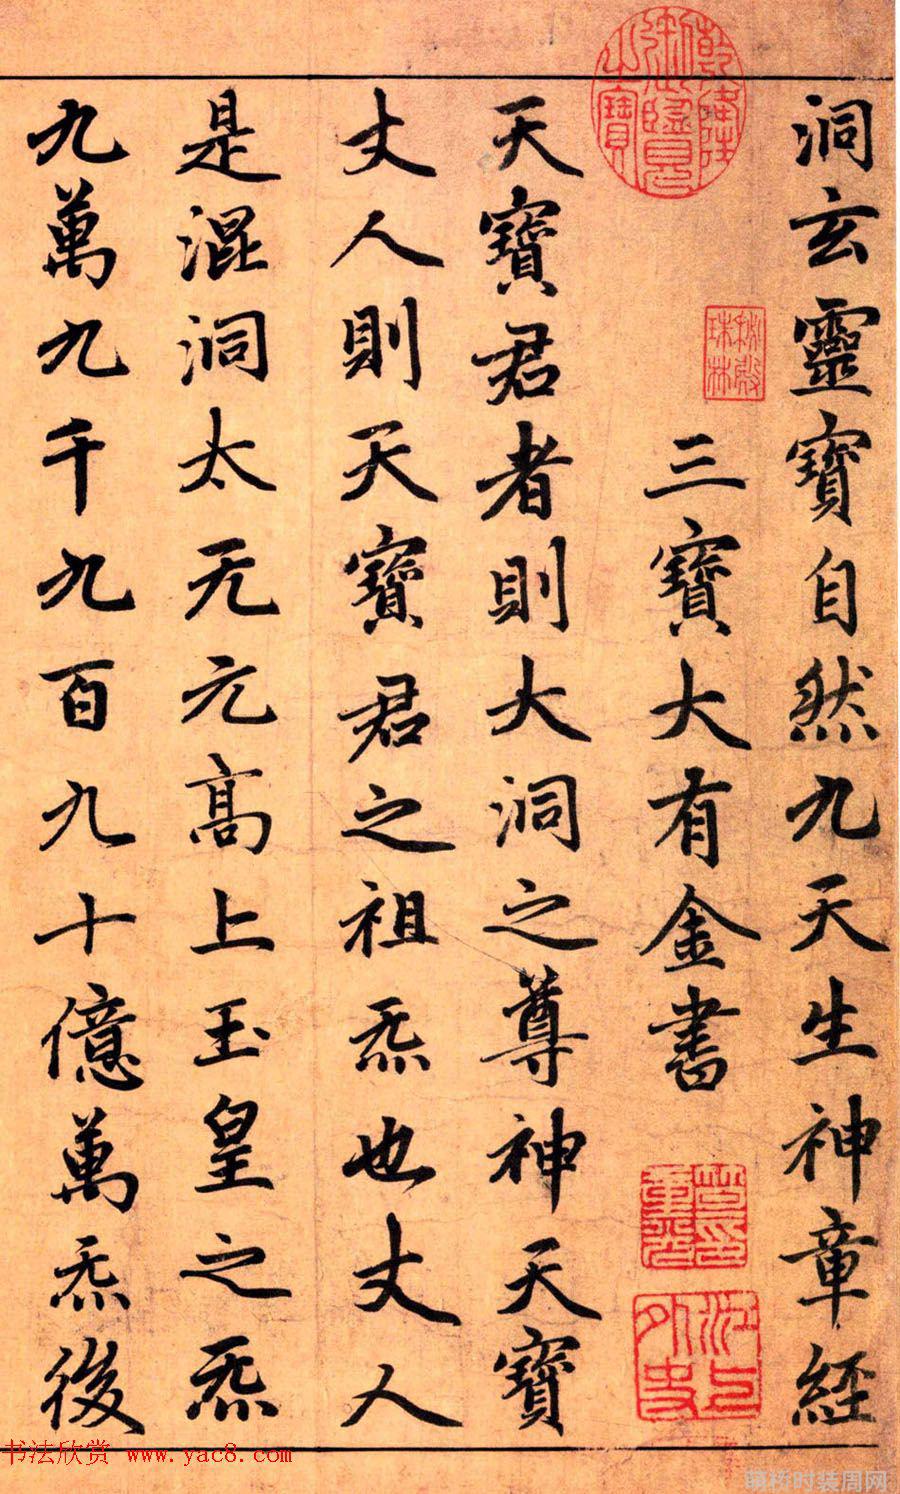 洞玄靈寶自然九天生神章經
乾隆御覽之寶
秘殿珠林
三寶大有金書
笪重光印
江上外史
天寶君者則大洞之尊神天寶
丈人則天寶君之祖炁也丈人
是混洞太无元高上玉皇之炁
九萬九千九百九十億萬炁後
书法欣赏 www.yac8.com
萌桥时装周网